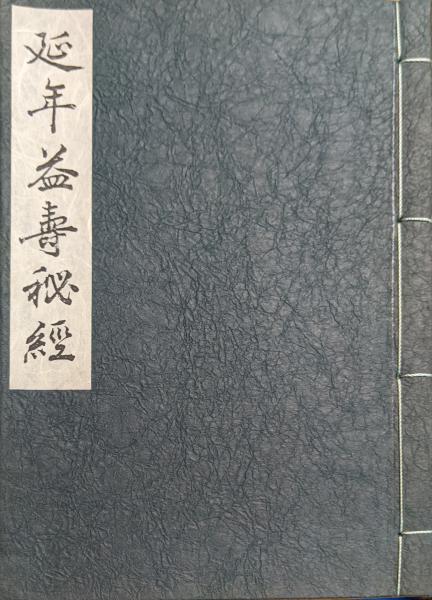 延年益壽秘經